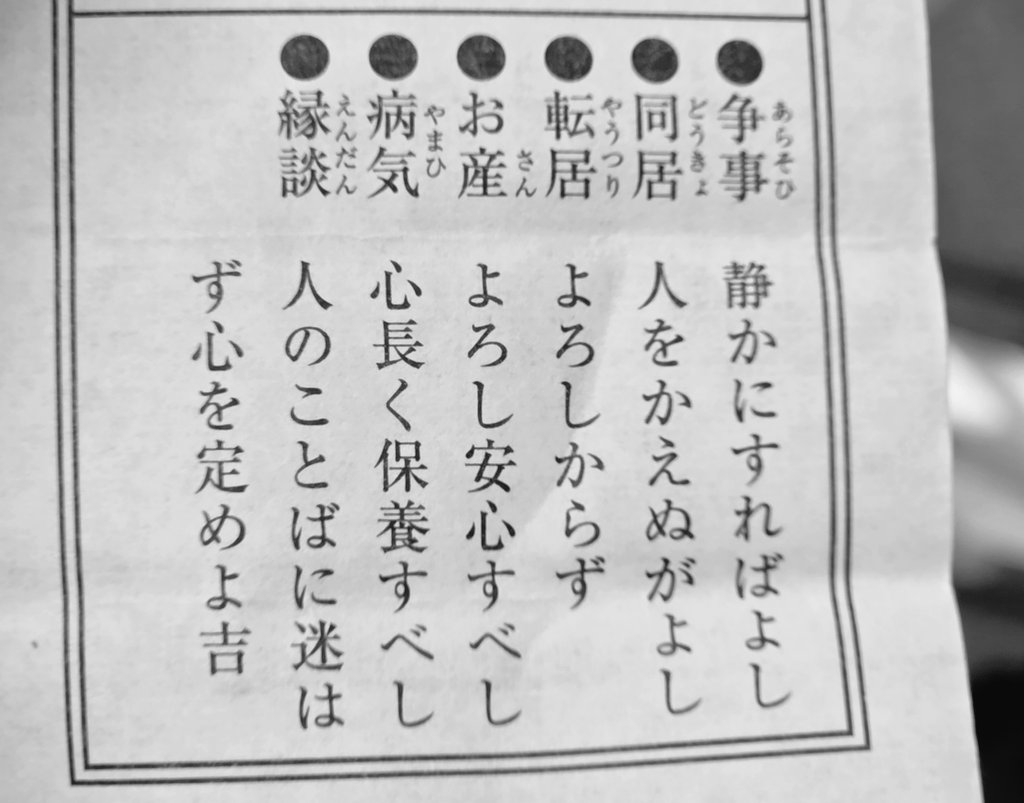 ●争事 静かにすればよし
あらそひ
●同居 人をかえぬがよし
どうきょ
●転居 よろしからず
やうつり
●お産 よろし安心すべし
さん
●病気 心長く保養すべし
やまひ
●縁談 人のことばに迷は
えんだん
ず心を定めよ吉